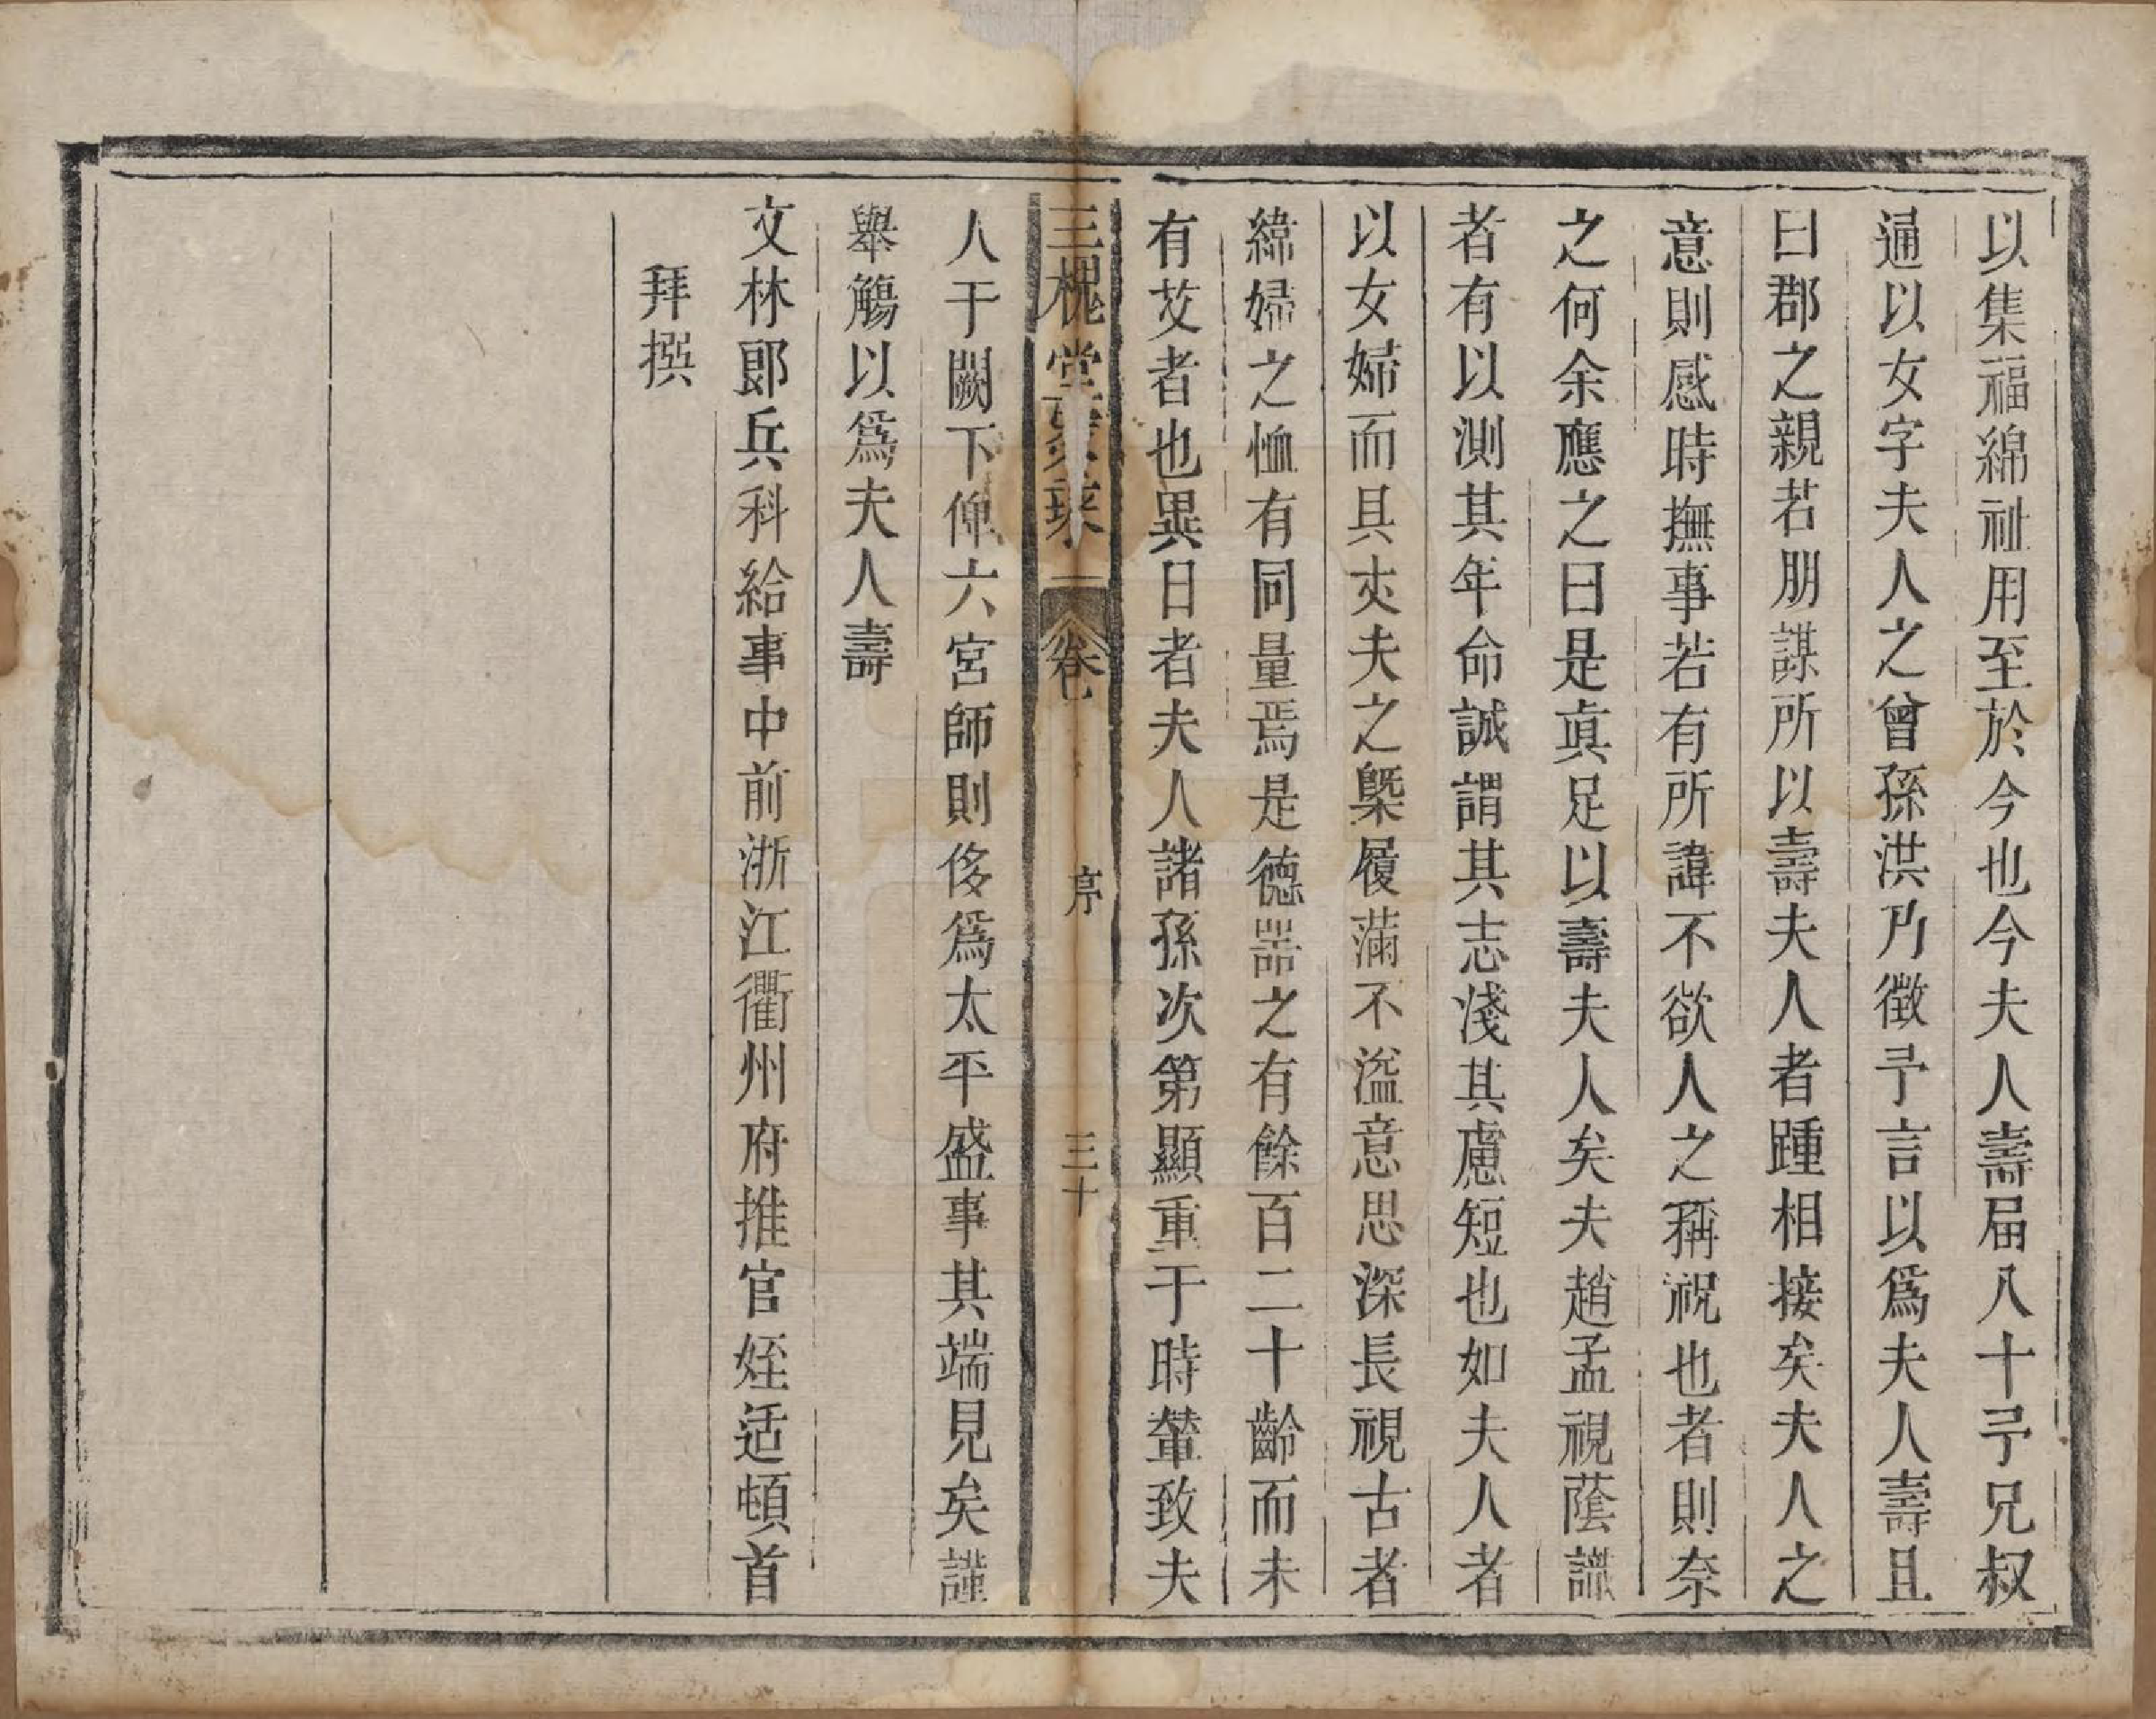 以集福綿祉用至於今也今夫人壽屆八十予兄叔
通以女字夫人之曾孫洪乃徵予言以爲夫人壽且
曰郡之親若朋謀所以壽夫人者踵相接矣夫人之
意則感時撫事若有所諱不欲人之稱祝也者則奈
之何余應之曰是眞足以壽夫人矣夫趙孟視蔭識
者有以測其年命誠謂其志淺其慮短也如夫人者
以女婦而具丈夫之槩履滿不溢意思深長視古者
緯婦之恤有同量焉是德噐之有餘百二十齡而未
有艾者也異日者夫人諸孫次第顯重于時輦致夫
三槐堂 卷 序 三十
人于闕下俾六宮師則侈爲太平盛事其端見矣謹
舉觴以爲夫人壽
文林郎兵科給事中前浙江衢州府推官姪适頓首
拜撰